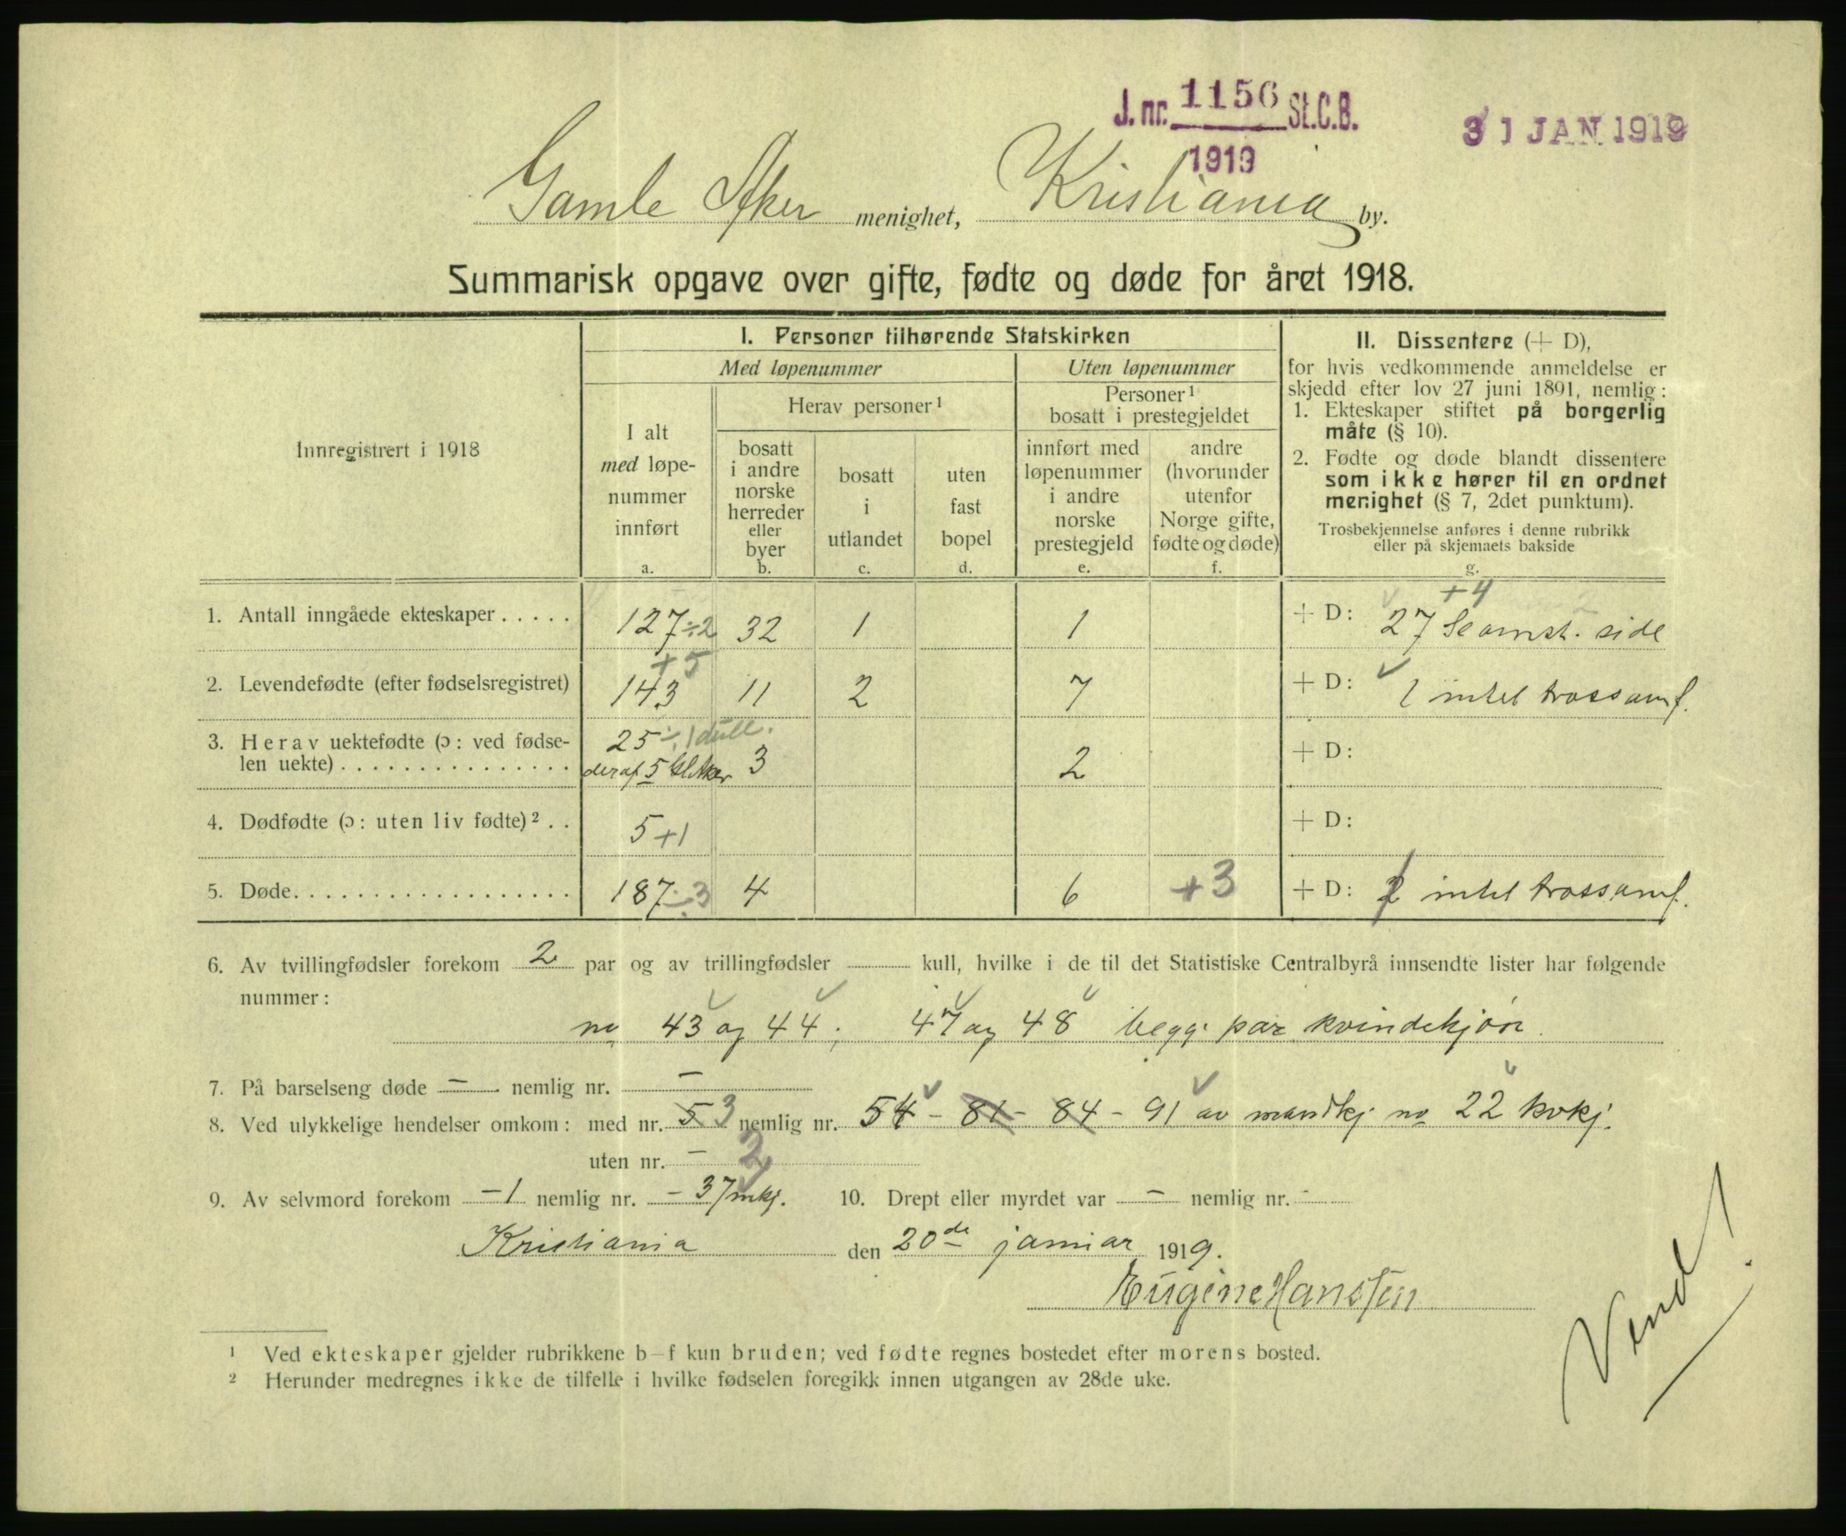 J. nr. 1156 St.C.B.
1919
31 JAN 1919
Gamle Aker menighet, Kristiania by.
Summarisk opgave over gifte, fødte og døde for året 1918.
Innregistrert i 1918
I. Personer tilhørende Statskirken
Med løpenummer
Uten løpenummer
I alt
med løpe-
nummer
innført
a.
Herav personer¹
bosatt
i andre
norske
herreder
eller
byer
b.
bosatt
i
utlandet
c.
uten
fast
bopel
d.
Personer¹
bosatt i prestegjeldet
innført med
løpenummer
i andre
norske
prestegjeld
e.
andre
(hvorunder
utenfor
Norge gifte,
fødte og døde)
f.
II. Dissentere (+ D),
for hvis vedkommende anmeldelse er
skjedd efter lov 27 juni 1891, nemlig:
1. Ekteskaper stiftet på borgerlig
måte (§ 10).
2. Fødte og døde blandt dissentere
som ikke hører til en ordnet
menighet (§ 7, 2det punktum).
Trosbekjennelse anføres i denne rubrikk
eller på skjemaets bakside
g.
+4
1. Antall inngåede ekteskaper ..... 127 ÷2 32 1 1 + D: 27 Se omst. side
+5
2. Levendefødte (efter fødselsregistret) 143 11 2 7 + D: 1 intet trossamf.
3. Herav uektefødte (ɔ: ved fødse- 25 ÷1
len uekte) ............... deraf 5 Gl. Aker 3 2 + D:
4. Dødfødte (ɔ: uten liv fødte)² .. 5 +1 + D:
5. Døde.................. 187 ÷3 4 6 +3 + D: 2 intet trossamf.
6. Av tvillingfødsler forekom 2 par og av trillingfødsler kull, hvilke i de til det Statistiske Centralbyrå innsendte lister har følgende
nummer:
no 43 og 44; 47 og 48 begge par kvindekjøn.
7. På barselseng døde – nemlig nr. –
8. Ved ulykkelige hendelser omkom: med nr. 5 3 nemlig nr. 54 – 81 – 84 – 91 av mandkj no 22 kvkj.
uten nr. – 2
9. Av selvmord forekom – 1 nemlig nr. – 37 mkj. 10. Drept eller myrdet var – nemlig nr. -
Kristiania den 20de januar 1919.
Eugene Hanssen
Vend!
¹ Ved ekteskaper gjelder rubrikkene b–f kun bruden; ved fødte regnes bostedet efter morens bosted.
² Herunder medregnes ikke de tilfelle i hvilke fødselen foregikk innen utgangen av 28de uke.